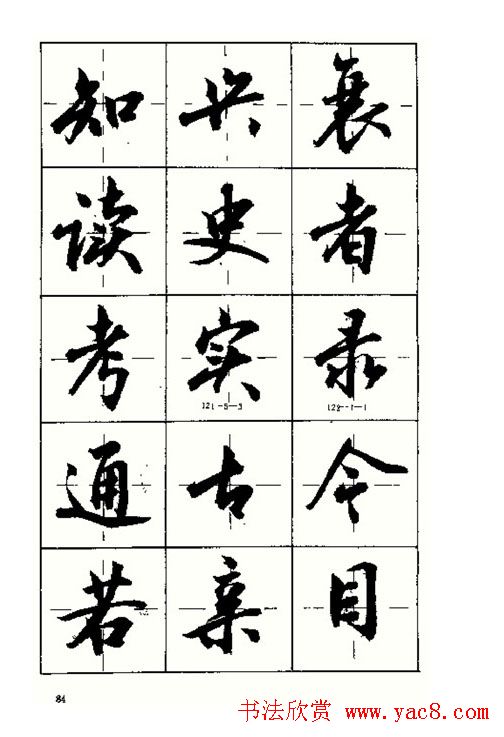 知兴衰
读史者
考实录
121-5-3 122-1-1
通古今
若亲目
84
书法欣赏 www.yac8.com